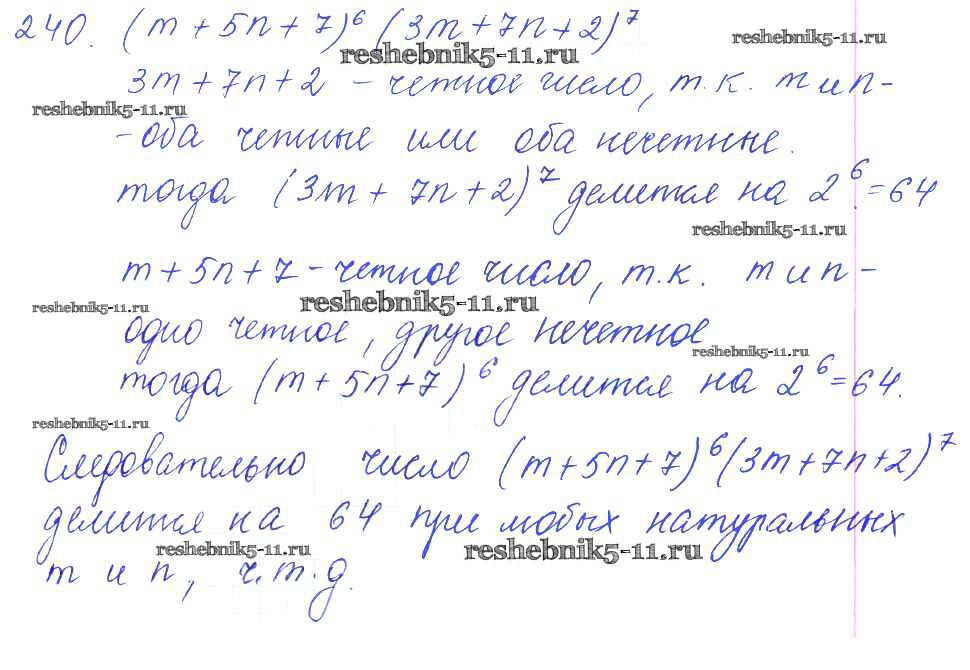 240. (m + 5n + 7)⁶ (3m + 7n + 2)⁷
reshebnik5-11.ru
reshebnik5-11.ru
3m + 7n + 2 - четное число, т.к. m и n -
reshebnik5-11.ru
- оба четные или оба нечетные.
тогда (3m + 7n + 2)⁷ делится на 2⁶ = 64
reshebnik5-11.ru
m + 5n + 7 - четное число, т.к. m и n -
reshebnik5-11.ru
reshebnik5-11.ru
одно четное, другое нечетное
reshebnik5-11.ru
тогда (m + 5n + 7)⁶ делится на 2⁶ = 64.
reshebnik5-11.ru
Следовательно число (m + 5n + 7)⁶ (3m + 7n + 2)⁷
делится на 64 при любых натуральных
reshebnik5-11.ru
reshebnik5-11.ru
m и n, ч.т.д.